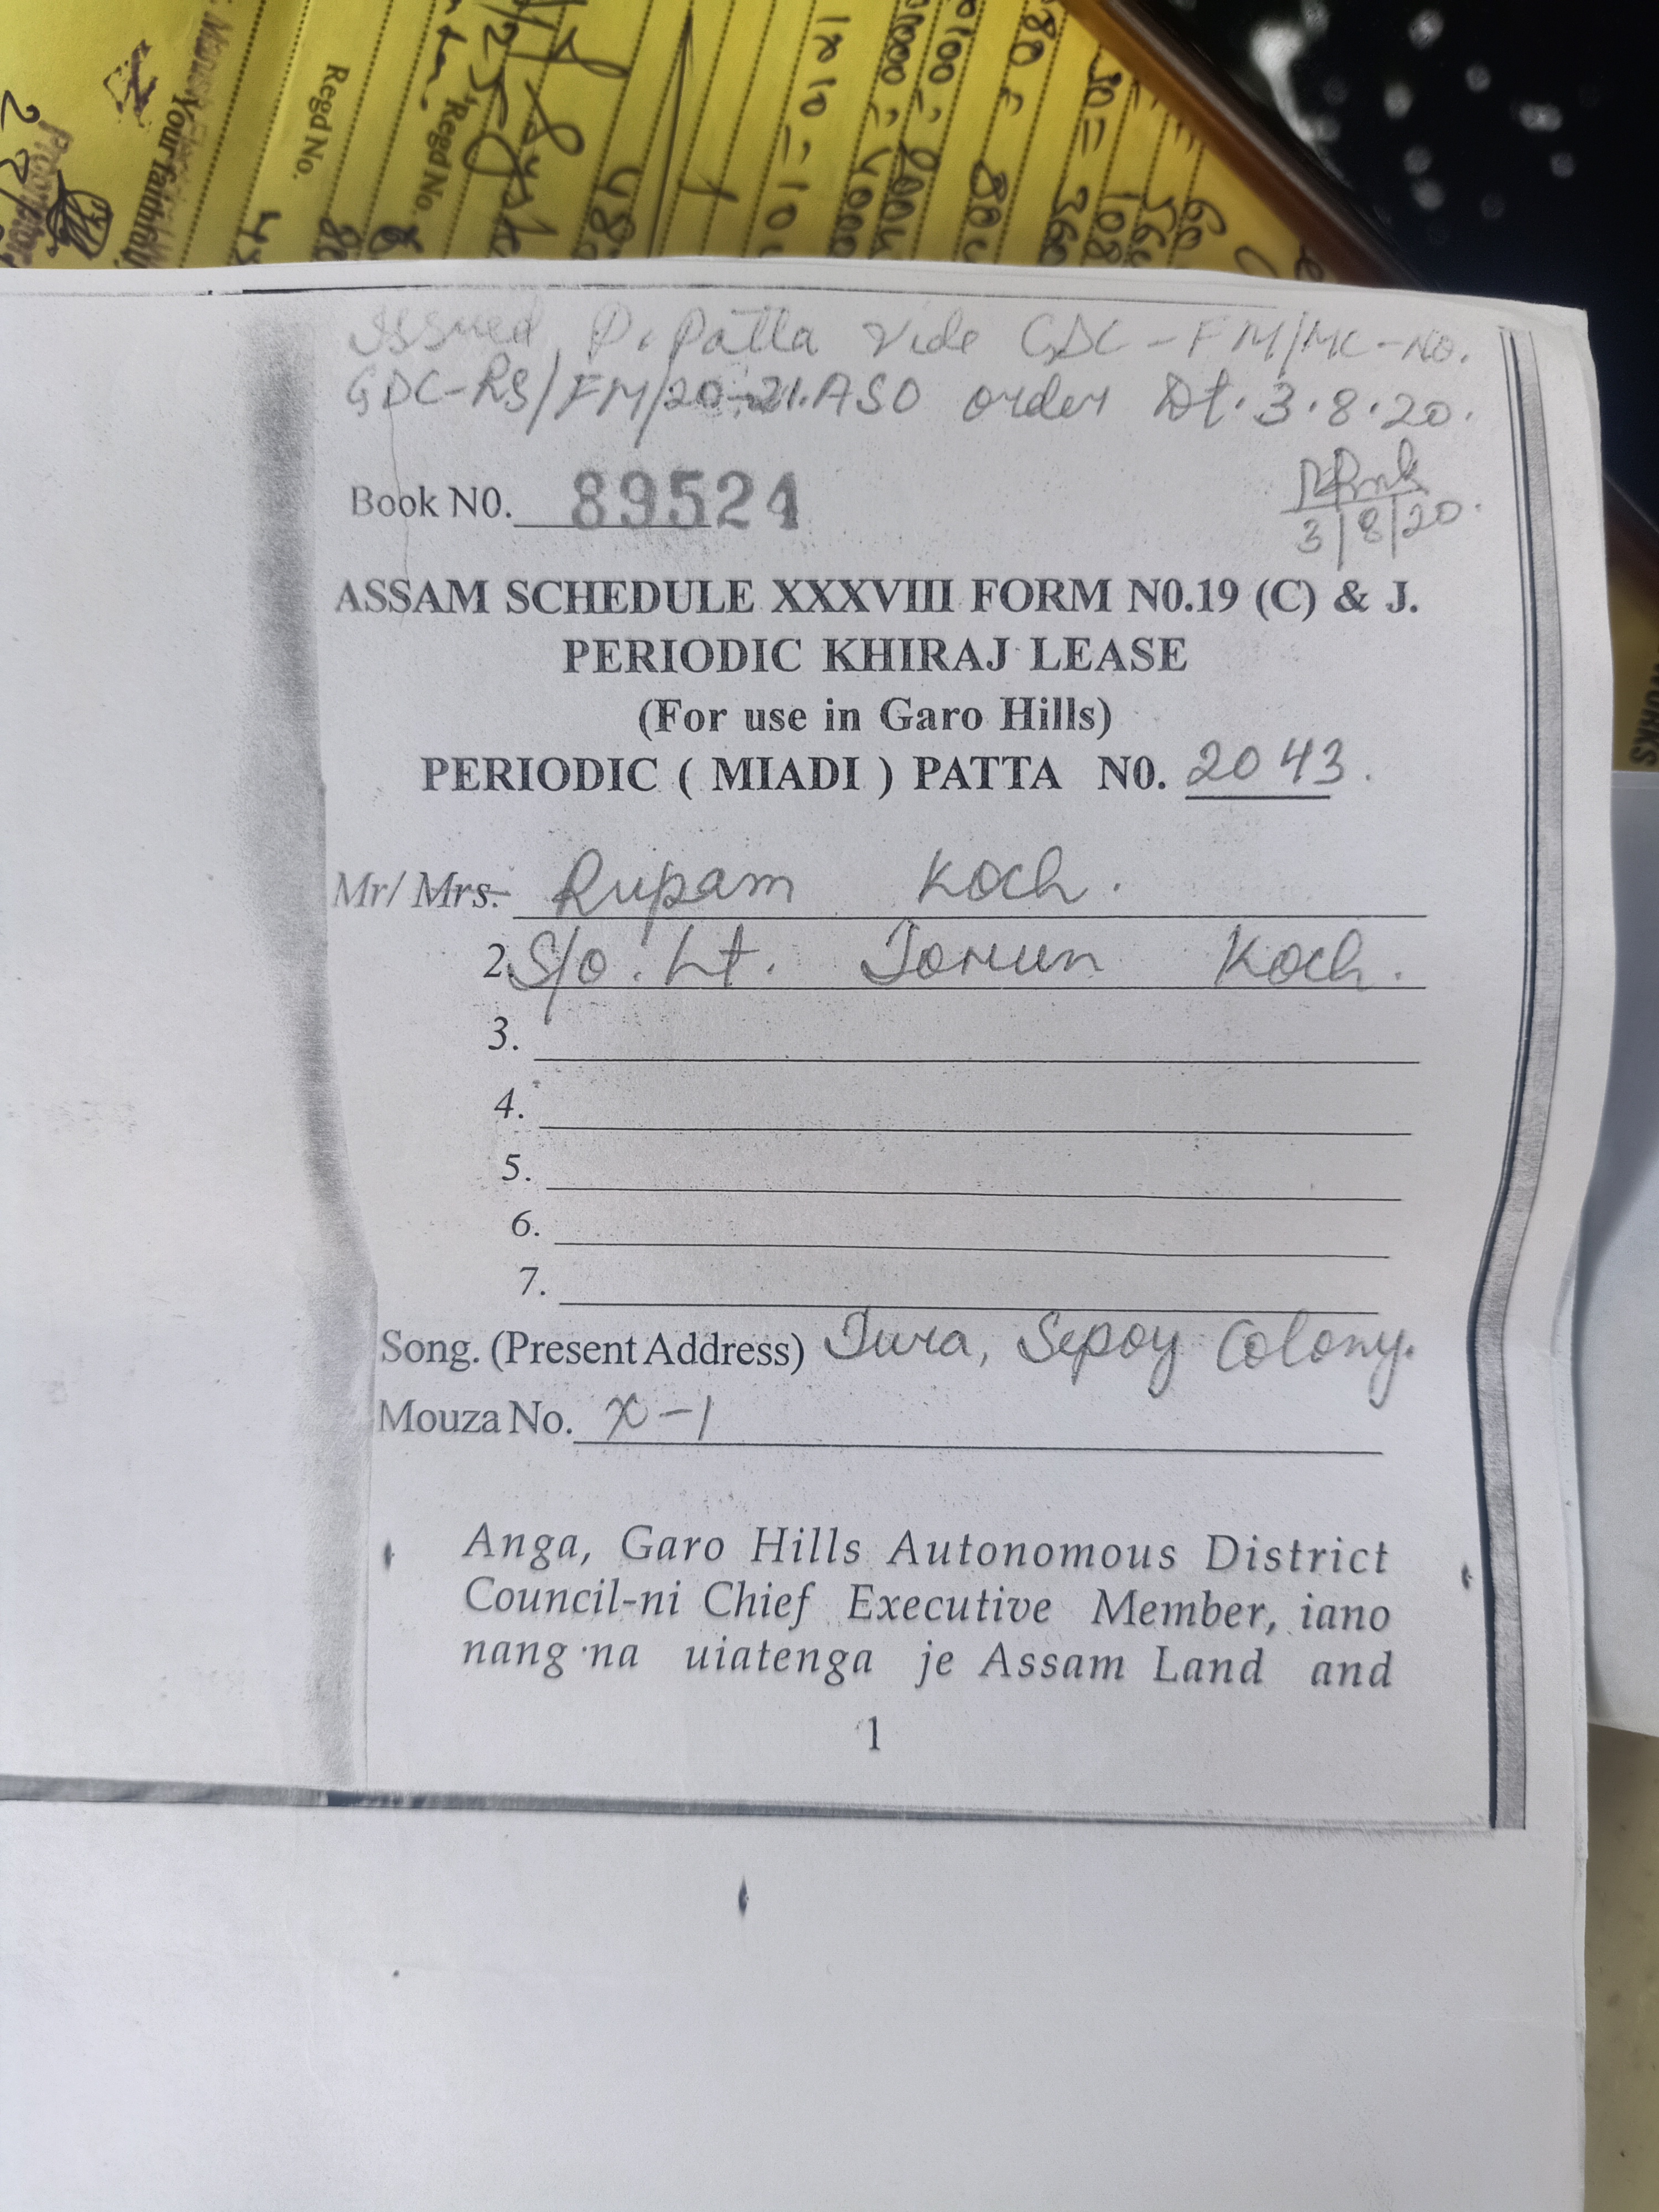 Your faithfully
Regd No.
Regd No.
1x10=10
Issued P. Patta vide GDC-FM/MC-No.
GDC-RS/FM/20-21.ASO order Dt. 3.8.20.
Book N0. 89524
3/8/20.
ASSAM SCHEDULE XXXVIII FORM N0.19 (C) & J.
PERIODIC KHIRAJ LEASE
(For use in Garo Hills)
PERIODIC ( MIADI ) PATTA N0. 2043.
Mr/ Mrs. Rupam Koch.
2. S/o. Lt. Torun Koch.
3.
4.
5.
6.
7.
Song. (Present Address) Tura, Sepoy Colony.
Mouza No. X-1
Anga, Garo Hills Autonomous District
Council-ni Chief Executive Member, iano
nang·na uiatenga je Assam Land and
1